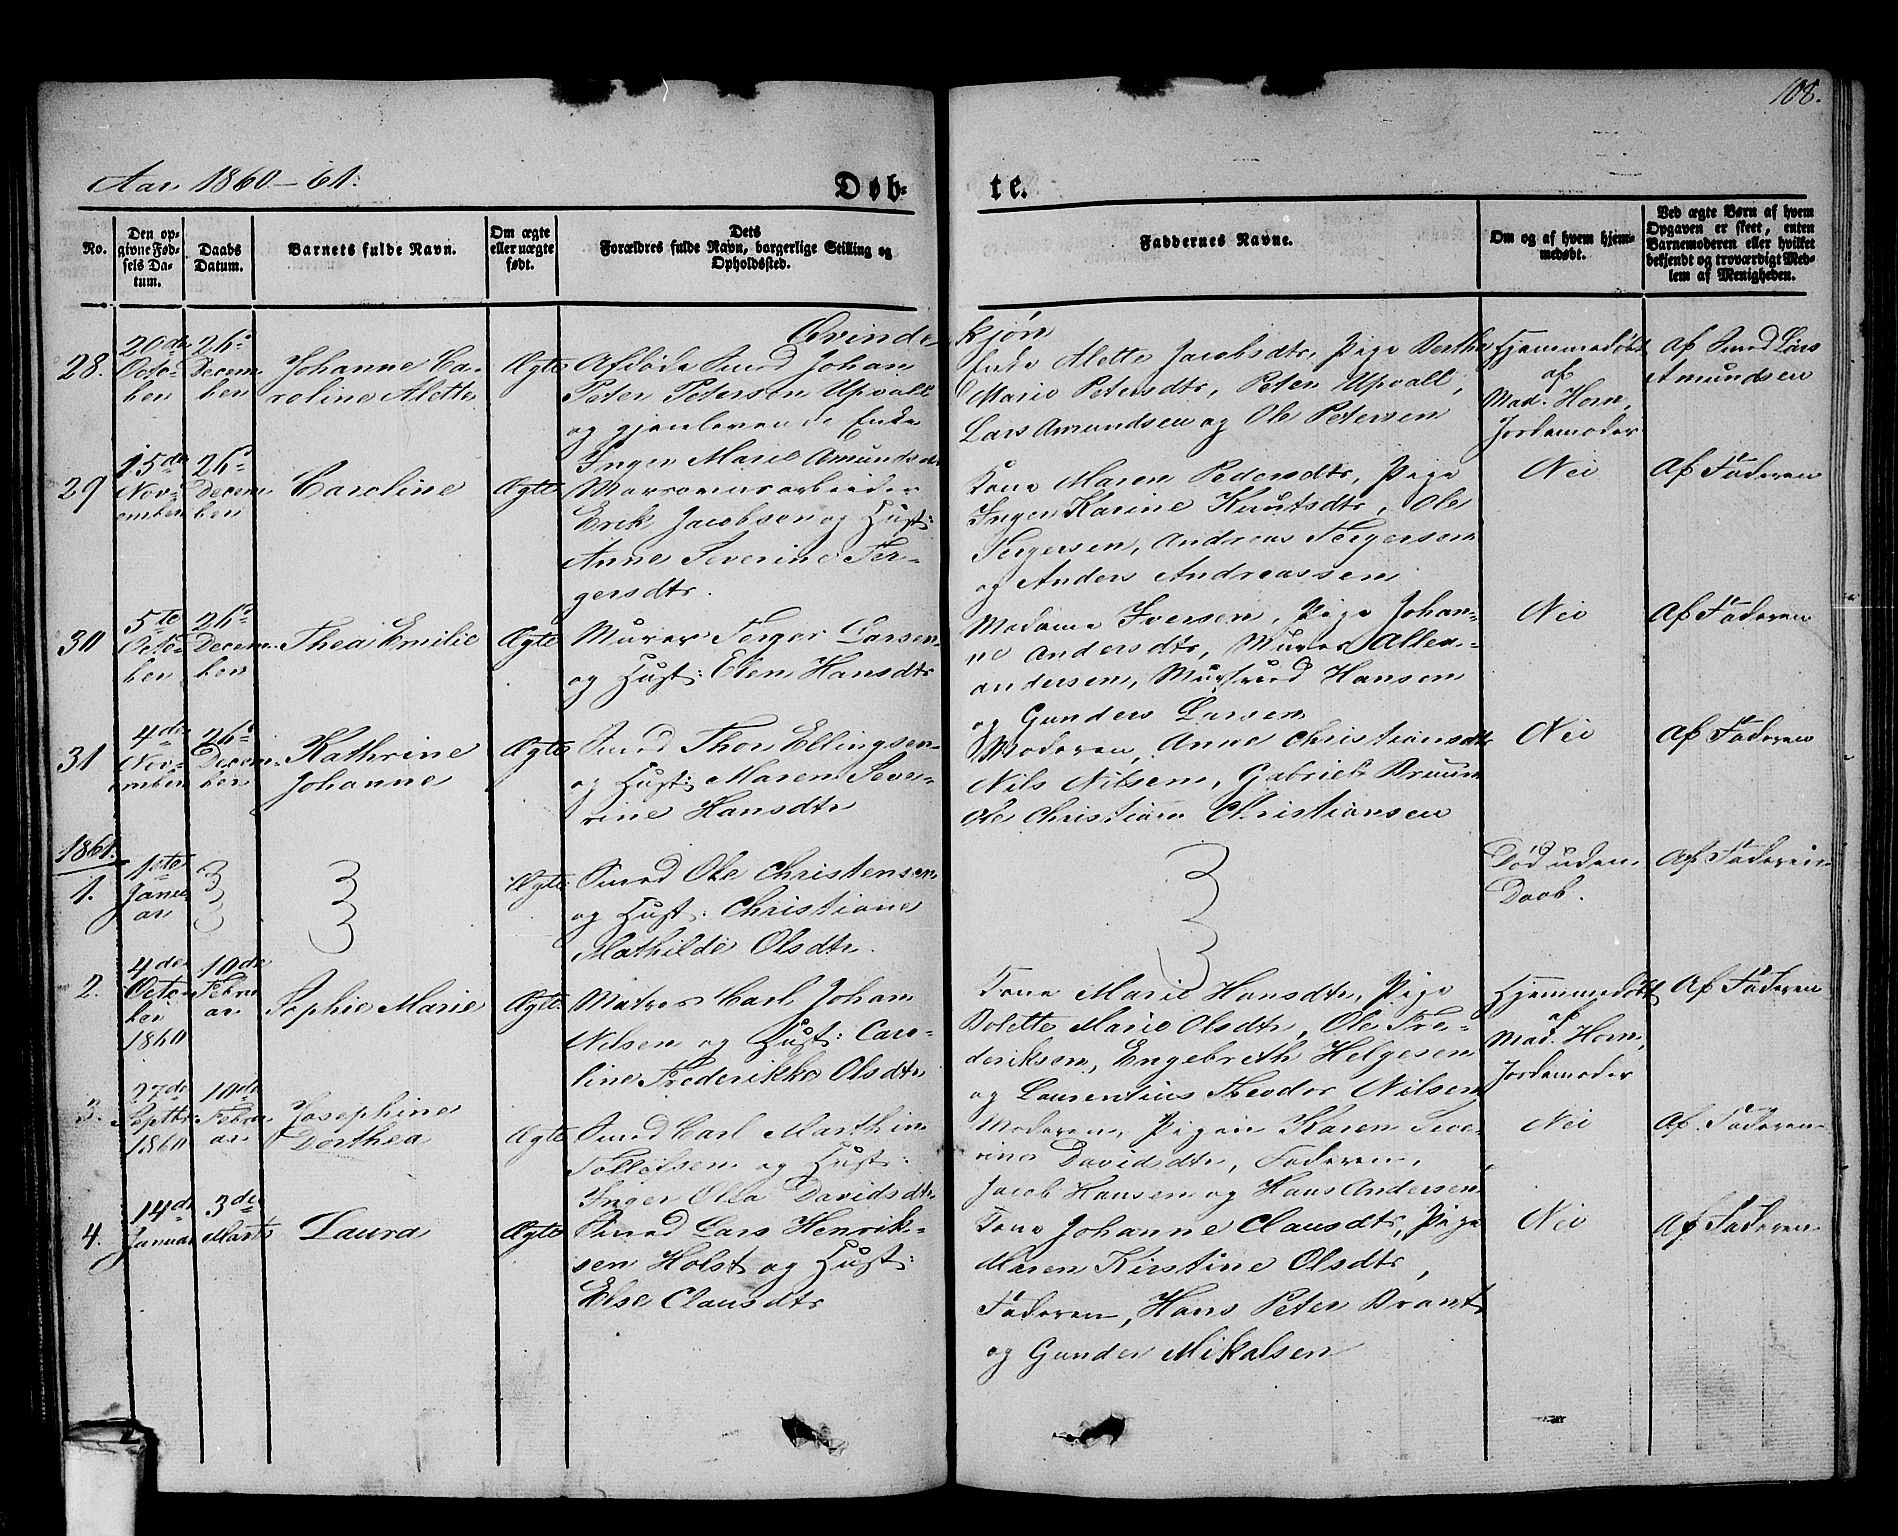 108.
Aar 1860-61.
Døb-
te.
No.
Den op-
givne Fød-
sels Da-
tum.
Daabs
Datum.
Barnets fulde Navn.
Om ægte
eller uægte
født.
Dets
Forældres fulde Navn, borgerlige Stilling og
Opholdssted.
Faddernes Navne.
Om og af hvem hjem-
medøbt.
Ved ægte Børn af hvem
Opgaven er skeet, enten
Barnemoderen eller hvilket
bekjendt og troværdigt Med-
lem af Menigheden.
Qvinde
kjøn
28.
20de
Octo-
ber
26.
Decem
ber
Johanne Ca-
roline Alette
Ægte
Afdøde Smed Johan
Peter Petersen Upvall
og gjenlevende Enke
Inger Marie Amundsdtr
Enke Alette Jacobsdtr, Pige Berthe
Marie Petersdtr, Peter Upvall,
Lars Amundsen og Ole Petersen
Hjemmedøbt
af
Mad. Horn,
Jordemoder
Af Smed Lars
Amundsen
29
15de
Nov-
ember
26.
Decem
ber
Caroline
Ægte
Erik Jacobsen og Hust:
Anne Severine Ter-
gersdtr.
Kone Maren Pedersdtr, Pige
Inger Karine Knutsdtr, Ole
Tergersen, Andreas Tergersen
og Anders Andreassen
Nei
Af Faderen
30
5te
Octo-
ber
26.
Decem-
ber
Thea Emilie
Ægte
Murer Terger Larsen
og Hust: Elen Hansdtr
Madame Iversen, Pige Johan-
ne Andersdtr, Murer Allex-
andersen, Hansen
og Gunders Larsen
Nei
Af Faderen
31
4de
Nov-
ember
26.
Decem-
ber
Kathrine
Johanne
Ægte
Smed Thor Ellingsen
og Hust: Maren Seve-
rine Hansdtr
Moderen, Anne Christiansdtr
Nils Nilsen, Gabriel Bruun
Ole Christian Christiansen
Nei
Af Faderen
1861.
1.
1ste
Janu-
ar
Ægte
Smed Ole Christensen
og Hust: Christiane
Mathilde Olsdtr.
Død uden
Daab.
Af Faderen
2.
4de
Octo-
ber
1860
10de
Febru
ar
Sophie Marie
Ægte
Matros Carl Johan
Nilsen og Hust: Caro-
line Frederikke Olsdtr
Kone Marie Hansdtr, Pige
Bolette Marie Olsdtr, Ole Fre-
deriksen, Engebreth Helgesen
og Laurentius Theodor Nilsen
Hjemmedøbt
af
Mad. Horn,
Jordemoder
Af Faderen
3.
27de
Septbr
1860
10de
Febru
ar
Josephine
Dorthea
Ægte
Smed Carl Marthin
Tollefsen og Hust:
Inger Olea Davidsdtr
Moderen, Pigen Karen Seve-
rine Davidsdtr, Faderen,
Jacob Hansen og Hans Andersen
Nei
Af Faderen
4.
14de
Januar
3de
Marts
Laura
Ægte
Smed Lars Henrik-
sen Holst og Hust:
Else Clausdtr
Kone Johanne Clausdtr, Pige
Maren Kirstine Olsdtr,
Faderen, Hans Peter Brant
og Gunder Mikalsen
Nei
Af Faderen